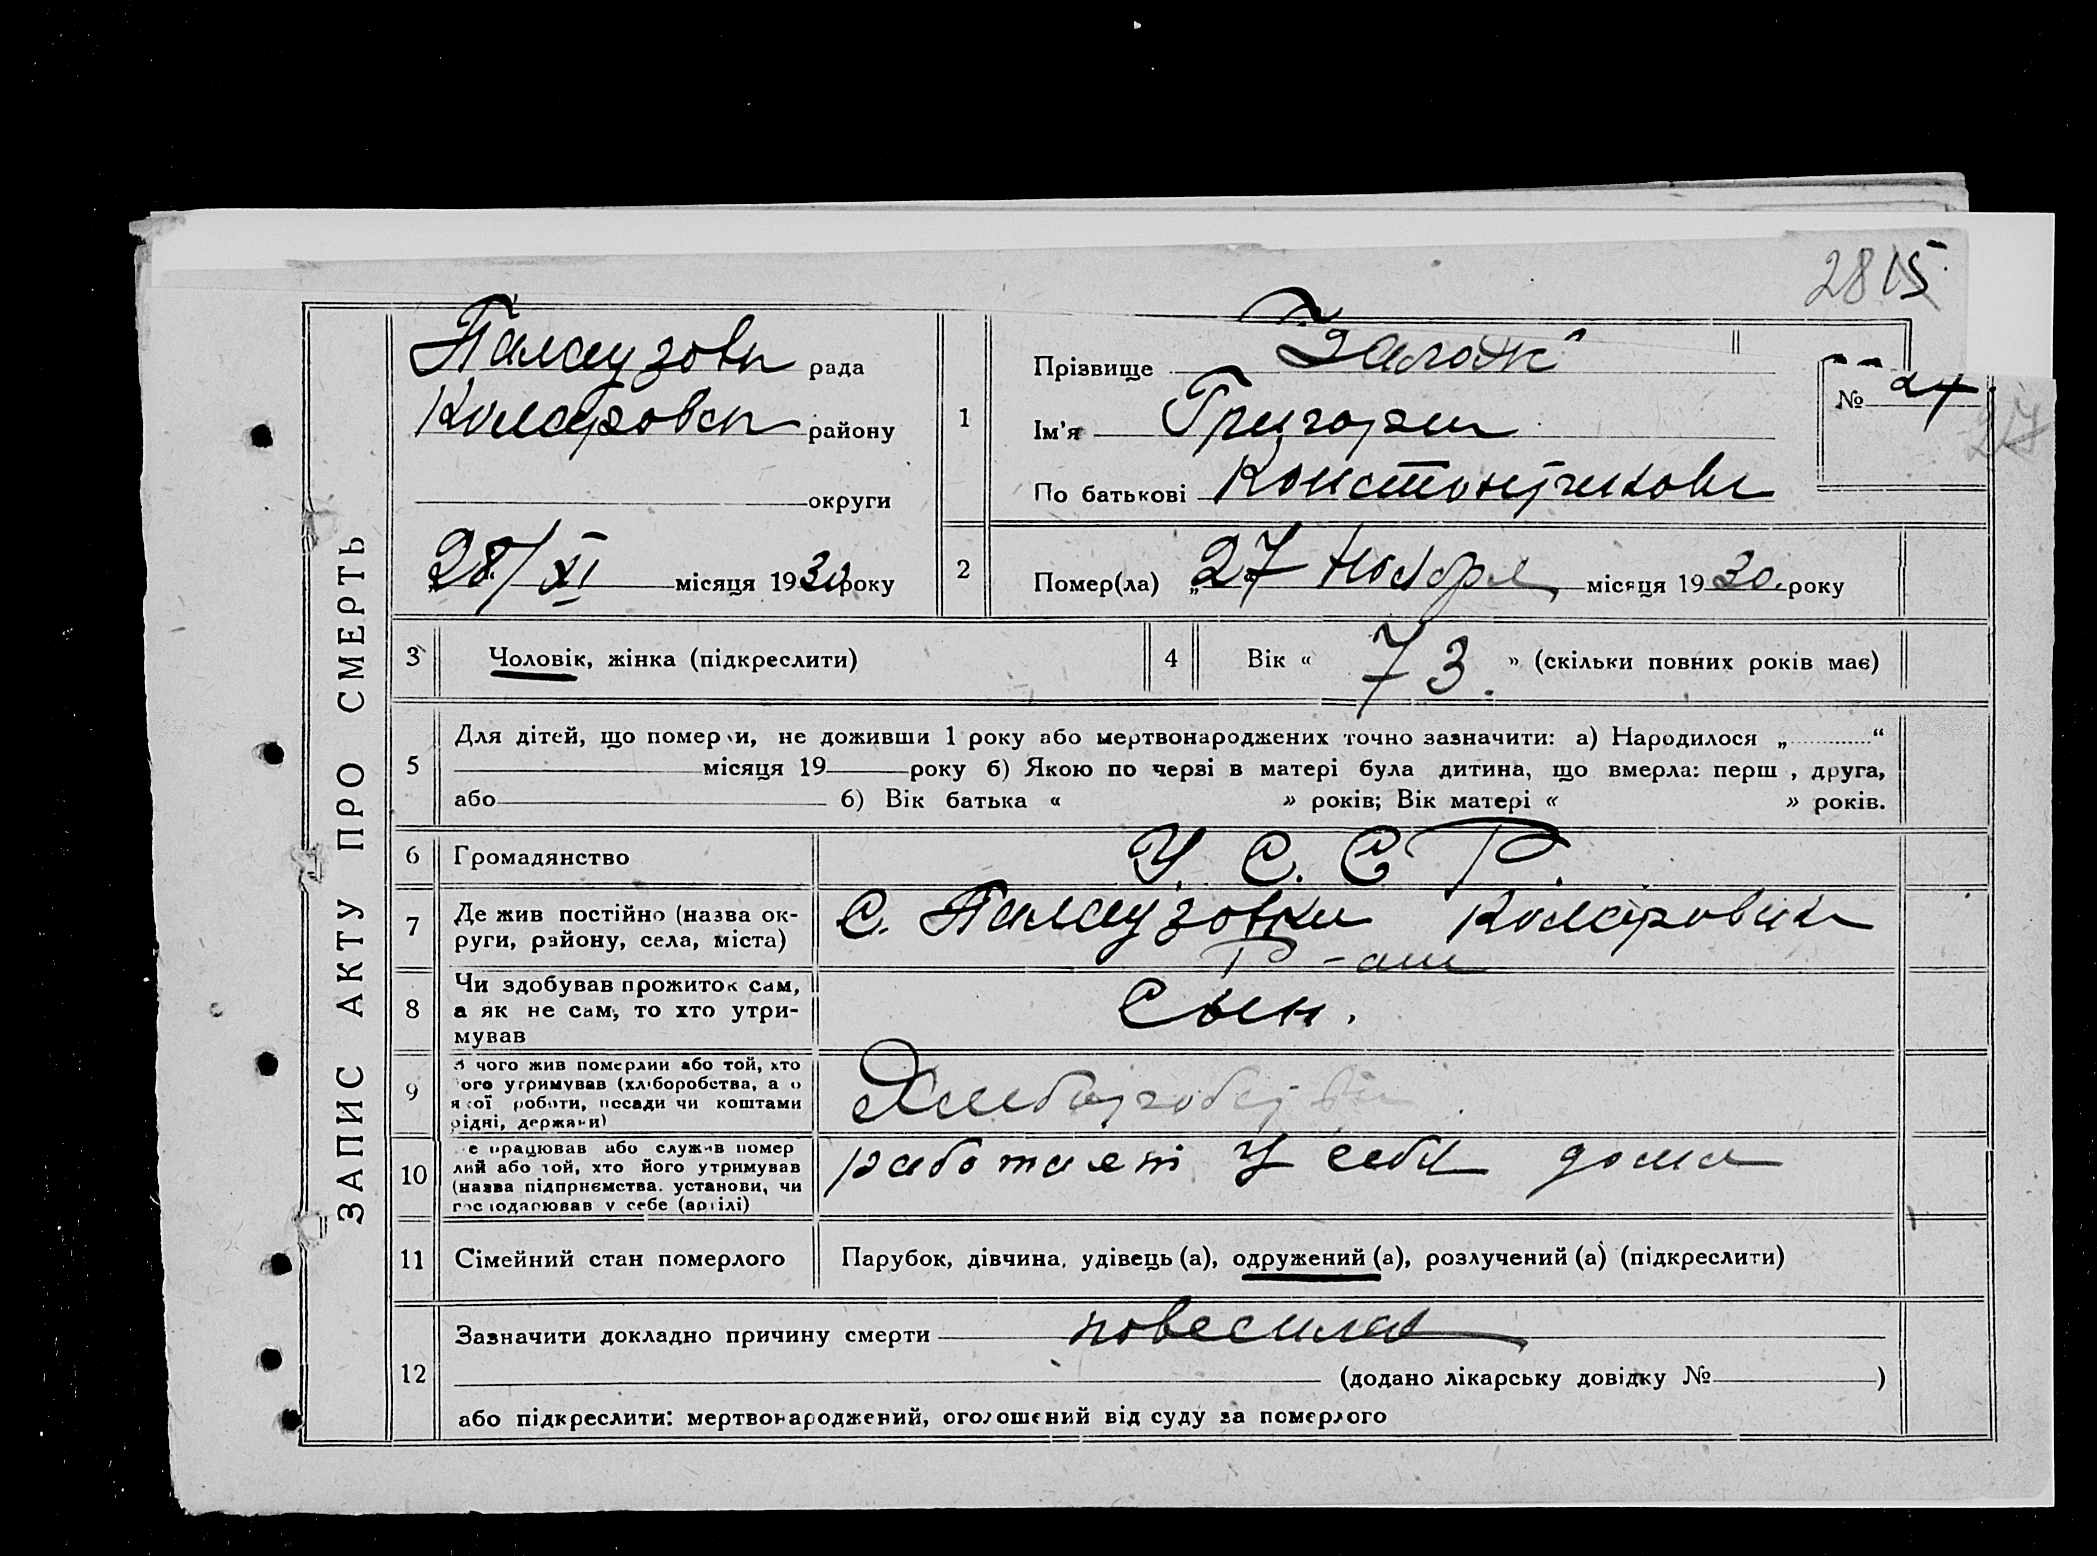 2815
ЗАПИС АКТУ ПРО СМЕРТЬ
Палаузовк рада
Коларовск району
округи
28/XI місяця 1930 року
1
Прізвище
Ім'я Григорий
По батькові Константинови
№ 24
27
2
Помер(ла) „27 Ноября місяця 1930. року
3 Чоловік, жінка (підкреслити)
4 Вік « 73. » (скільки повних років має)
5 Для дітей, що померли, не доживши 1 року або мертвонароджених точно зазначити: а) Народилося „ “
місяця 19 року б) Якою по черзі в матері була дитина, що вмерла: перш , друга,
або б) Вік батька « » років; Вік матері « » років.
6 Громадянство У. С. С Р.
7 Де жив постійно (назва ок-
руги, району, села, міста)
С. Палаузовки Коларовск
Р-ан
8 Чи здобував прожиток сам,
а як не сам, то хто утри-
мував
Сын.
9 З чого жив померлий або той, хто
ого утримував (хліборобства, а о
якої роботи, посади чи коштами
рідні, держави)
10 е працював або служив помер
лий або той, хто його утримував
(назва підприємства, установи, чи
господарював у себе (артілі)
работает У себя дома
11 Сімейний стан померлого Парубок, дівчина, удівець (а), одружений (а), розлучений (а) (підкреслити)
12 Зазначити докладно причину смерти повесился
(додано лікарську довідку № )
або підкреслити: мертвонароджений, оголошений від суду за померлого